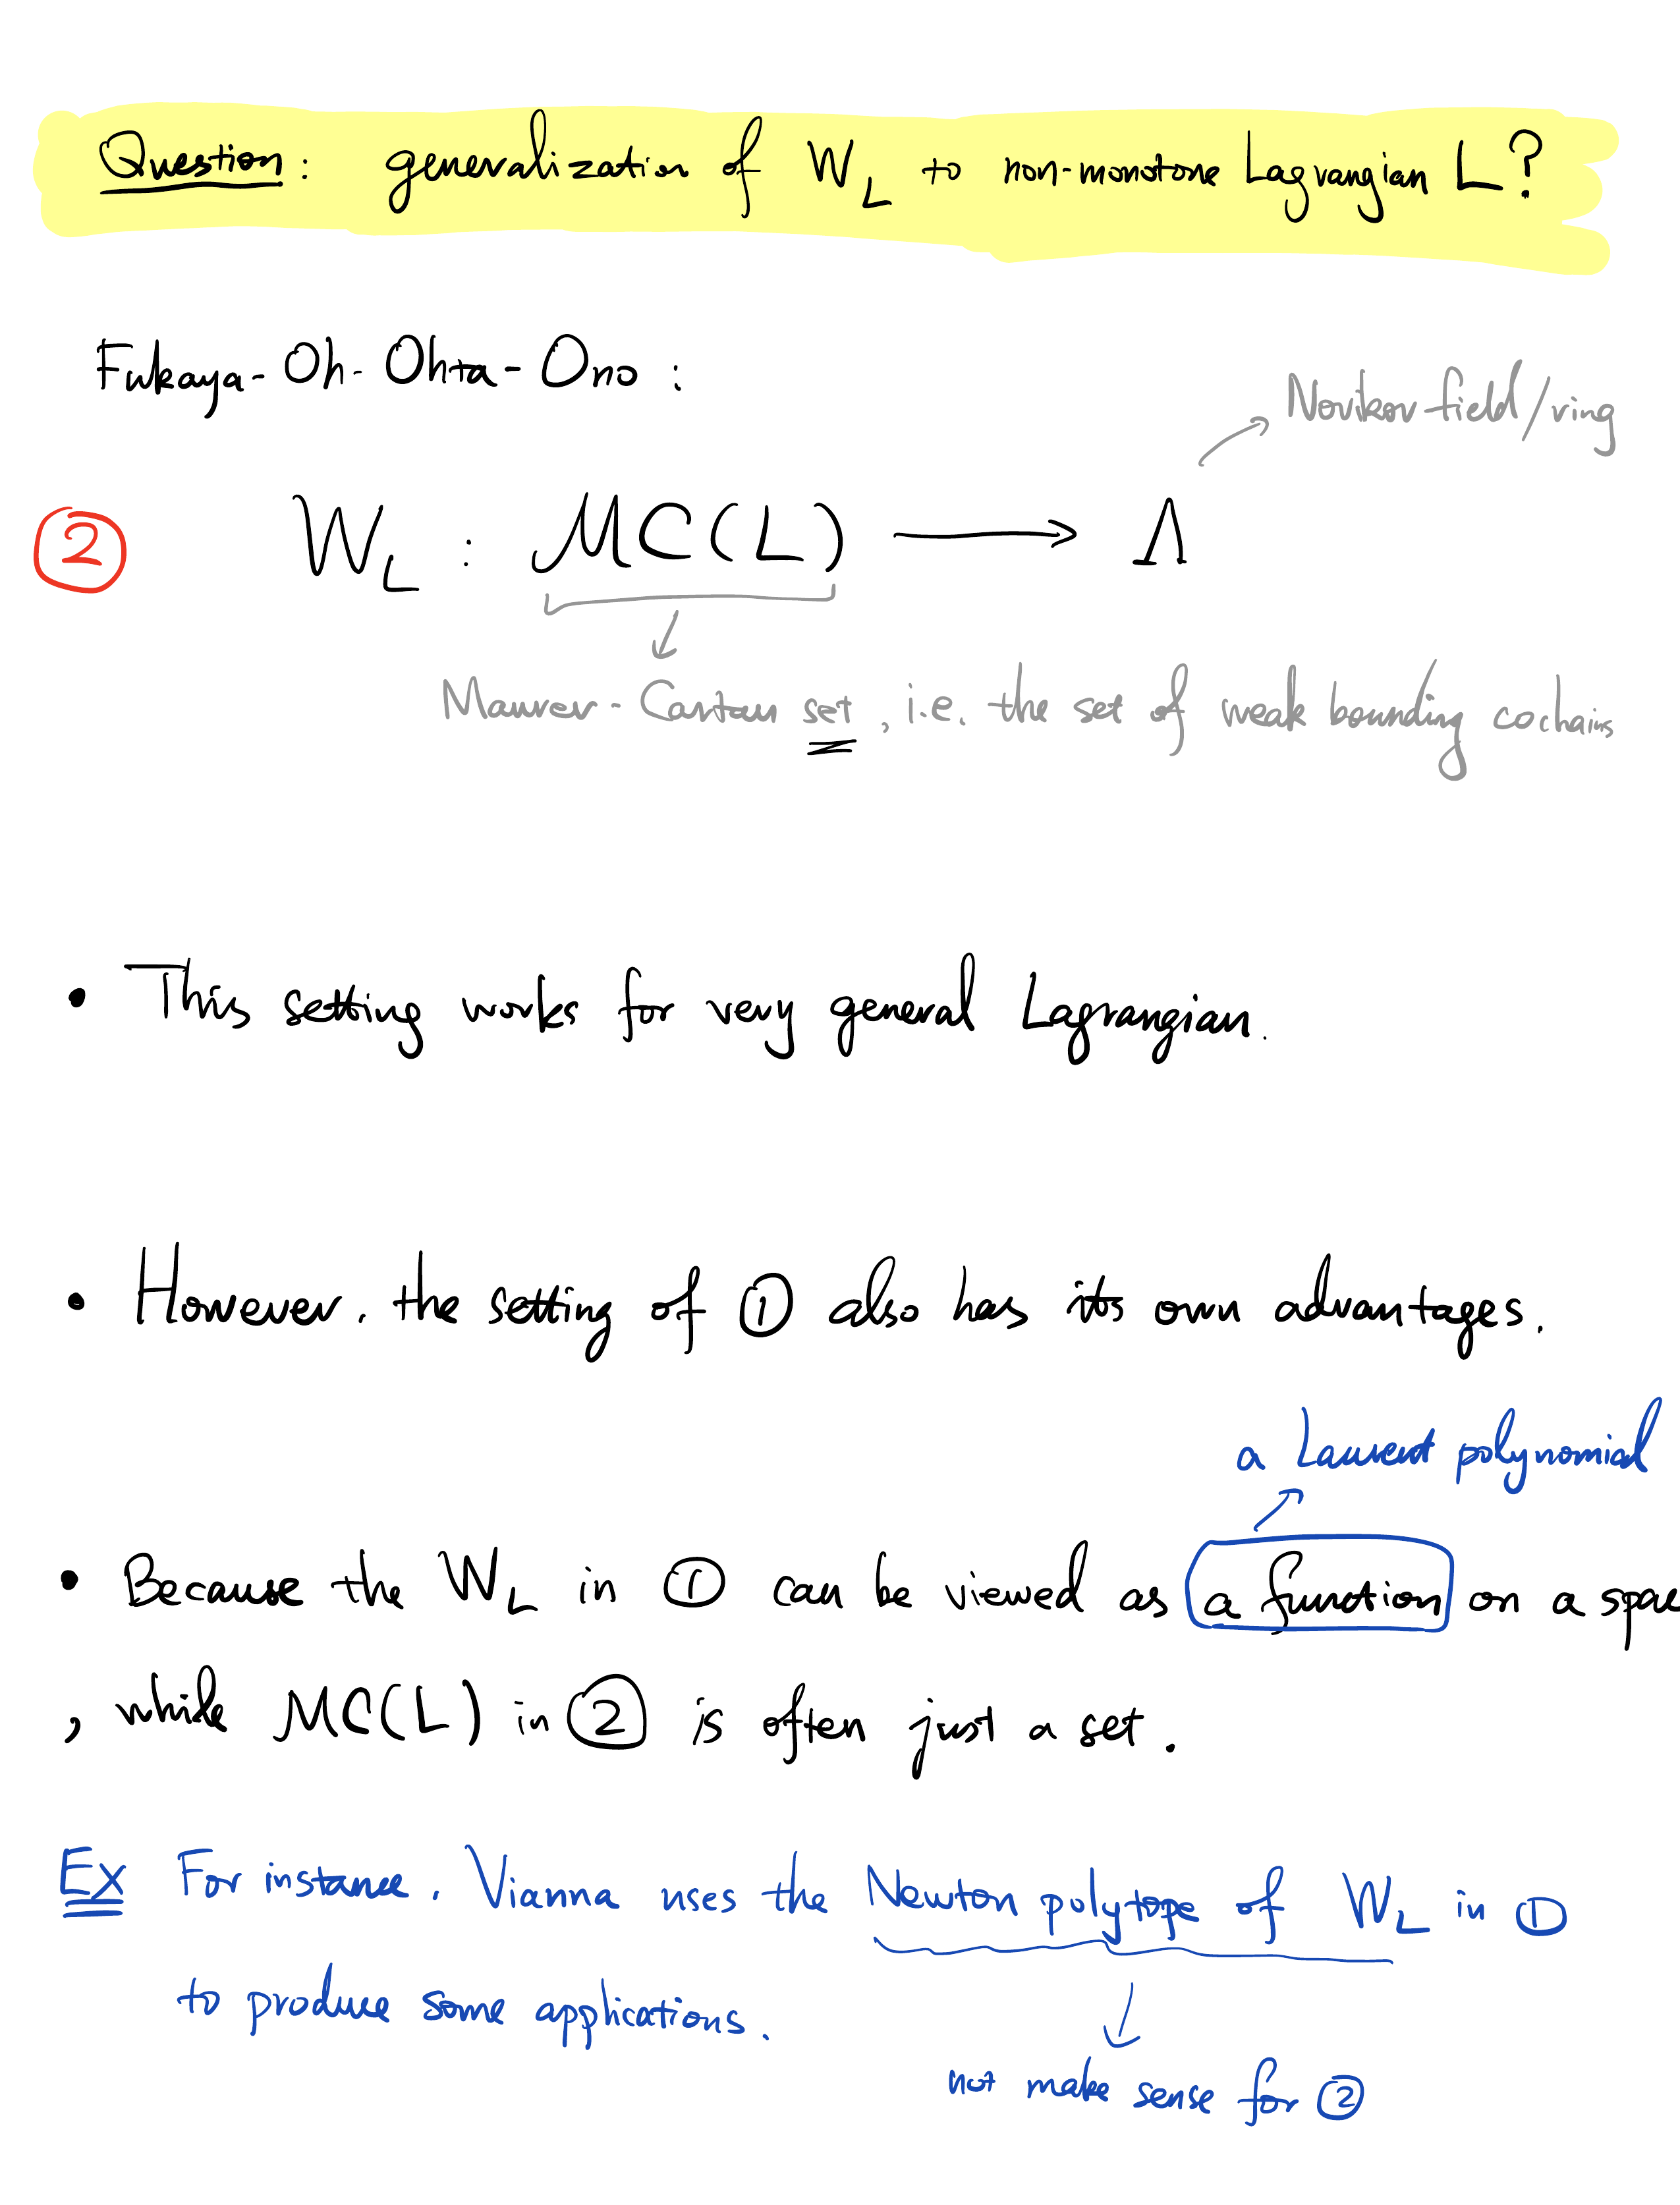 Question: generalization of W_L to non-monotone Lagrangian L?
Fukaya-Oh-Ohta-Ono:
Novikov field/ring
② W_L : MC(L) ⟶ Λ
Maurer-Cartan set, i.e. the set of weak bounding cochains
• This setting works for very general Lagrangian.
• However, the setting of ① also has its own advantages.
a Laurent polynomial
• Because the W_L in ① can be viewed as a function on a spac
, while MC(L) in ② is often just a set.
Ex For instance, Vianna uses the Newton polytope of W_L in ①
to produce some applications.
not make sense for ②